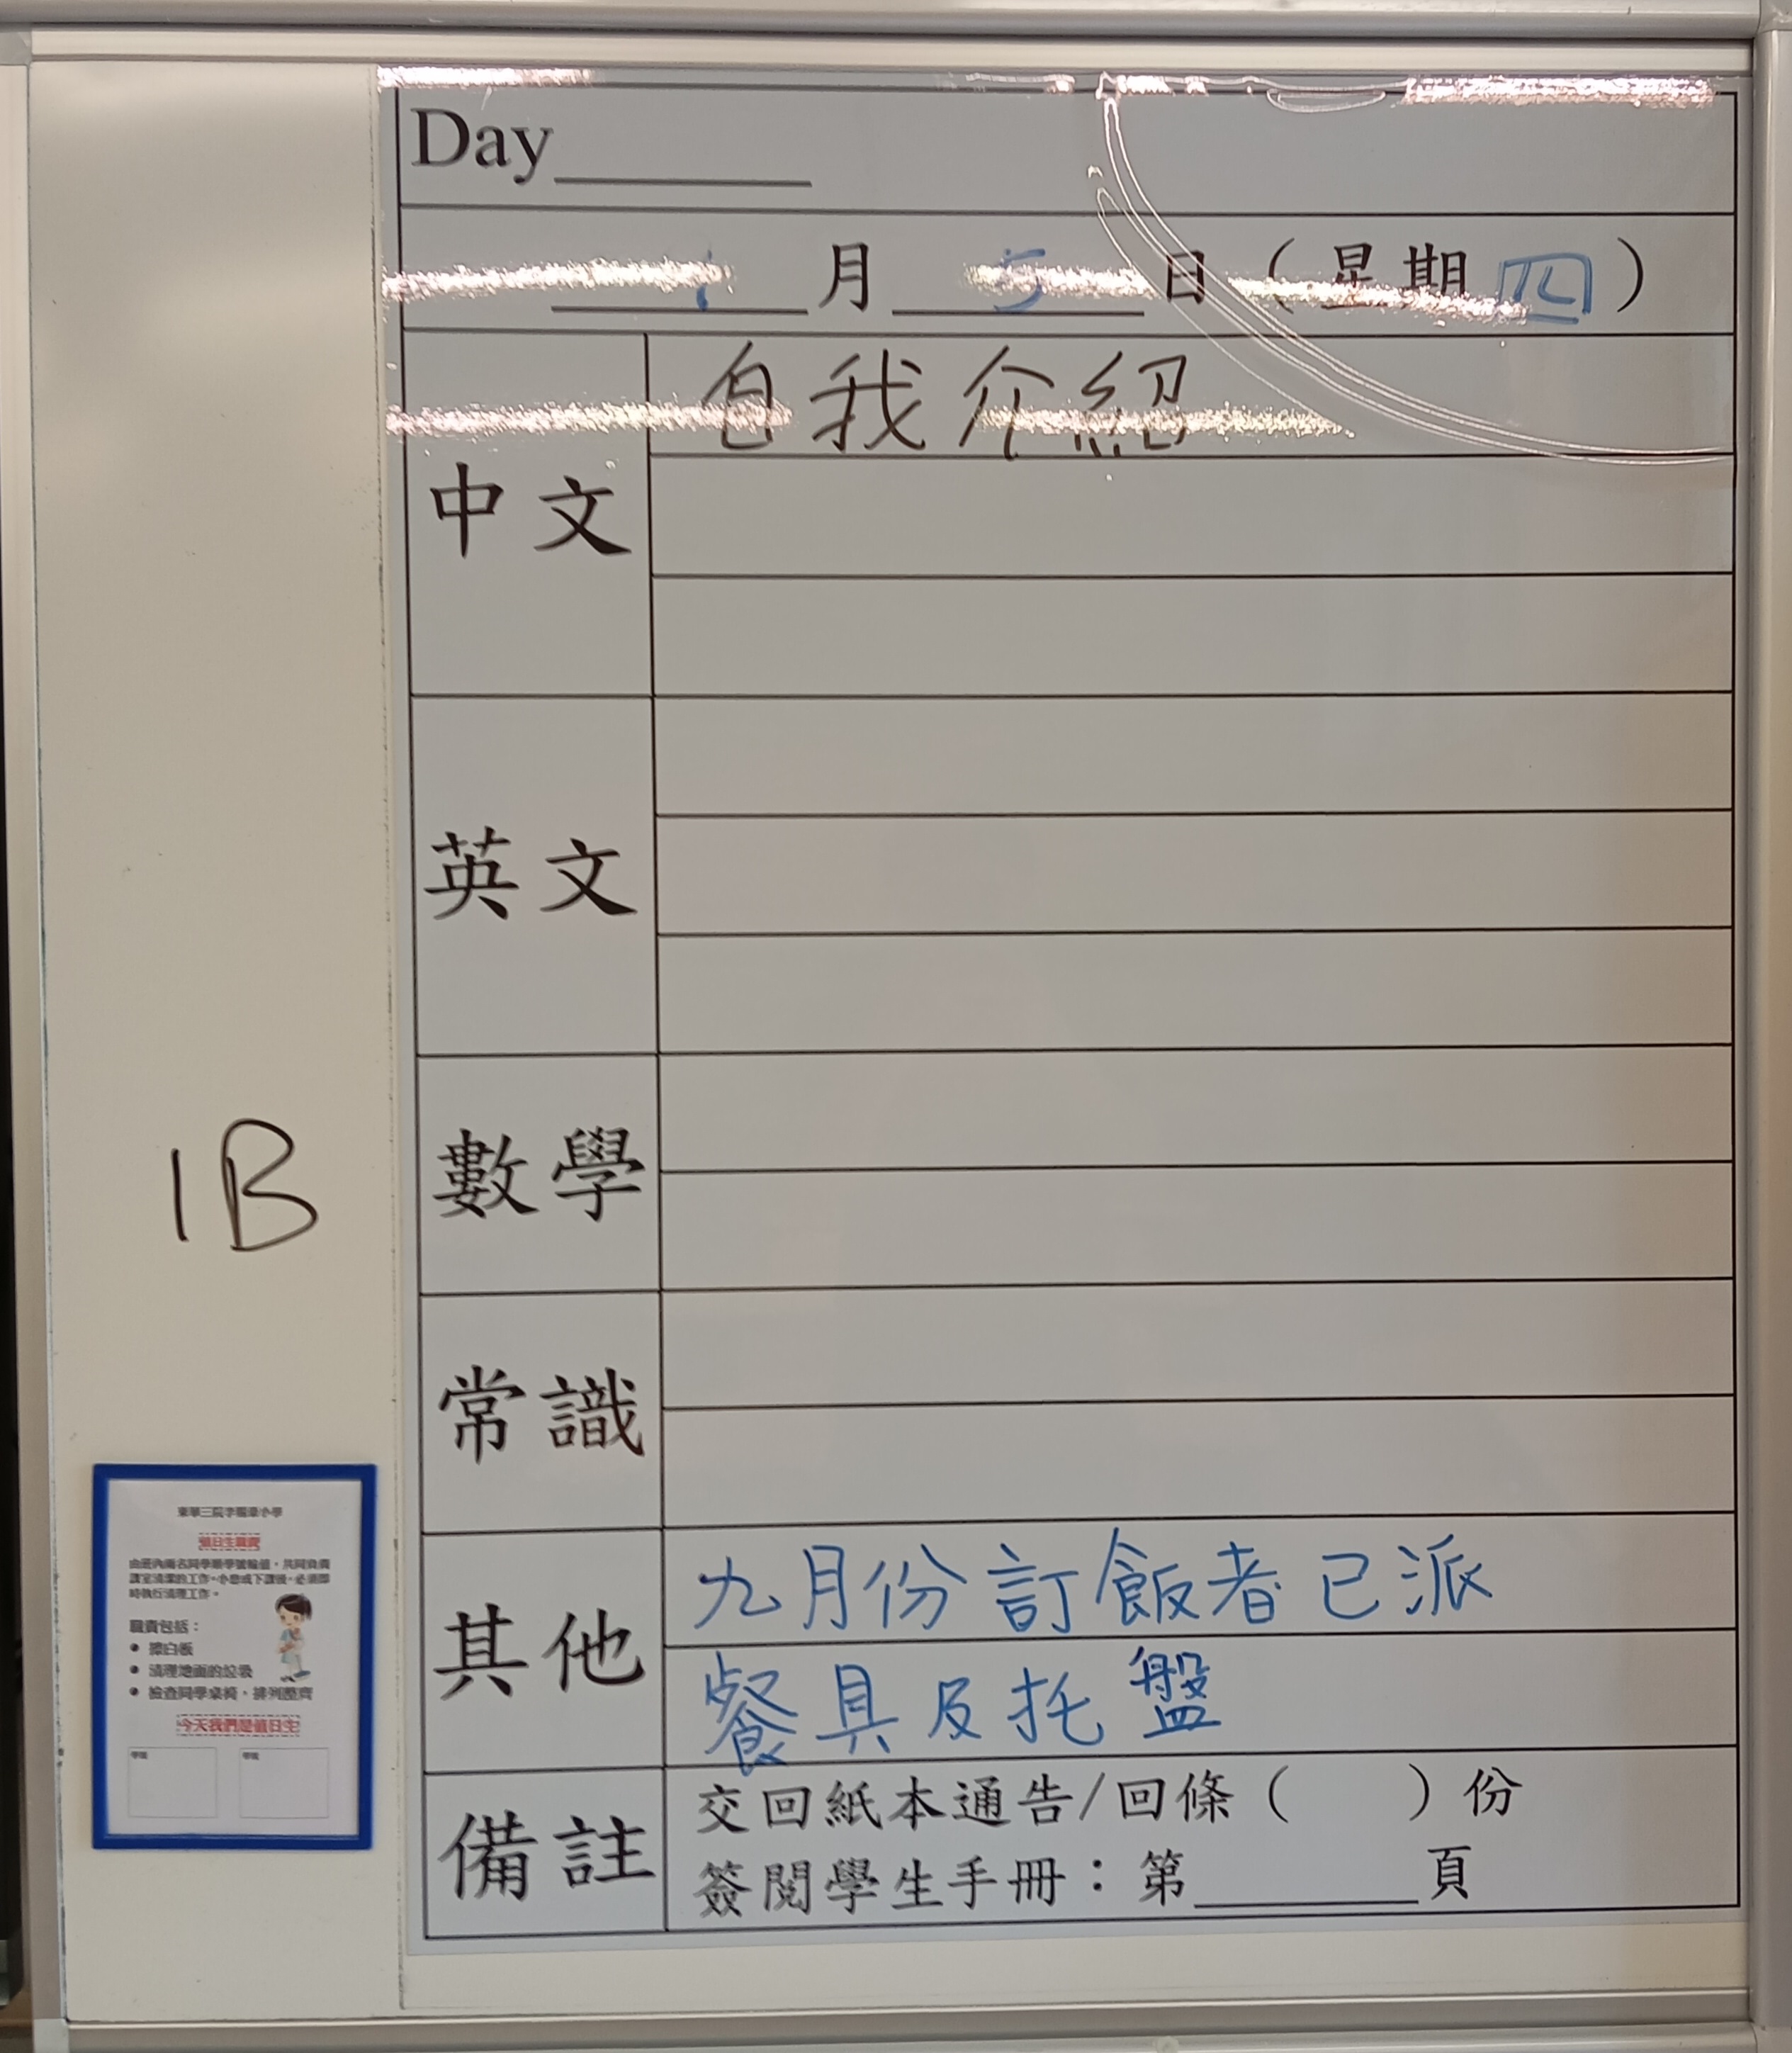 Day
月 5 日（星期四）
自我介紹
中文
英文
數學
1B
常識
其他
九月份訂飯者已派
餐具及托盤
備註
交回紙本通告/回條（ ）份
簽閱學生手冊：第 頁
值日生職責
由班內兩名同學順學號輪值，共同負責
課室清潔的工作。小息或下課後，必須即
時執行清理工作。
職責包括：
• 擦白板
• 清理地面的垃圾
• 檢查同學桌椅，排列整齊
今天我們是值日生